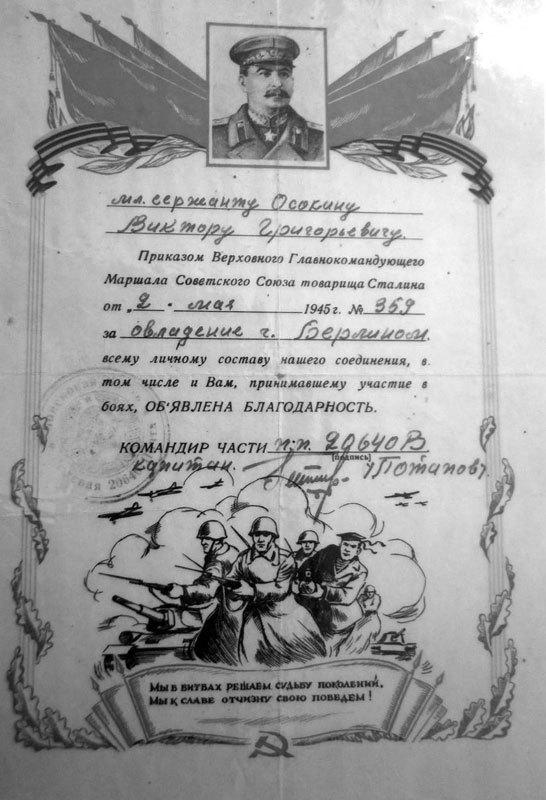 мл. сержанту Осокину
Виктору Григорьевичу.
Приказом Верховного Главнокомандующего
Маршала Советского Союза товарища Сталина
от „2 · мая 1945 г. № 359
за овладение г. Берлином
всему личному составу нашего соединения, в
том числе и Вам, принимавшему участие в
боях, ОБ'ЯВЛЕНА БЛАГОДАРНОСТЬ.
КОМАНДИР ЧАСТИ п.п. 20640В
[подпись]
капитан. (Потапов).
МЫ В БИТВАХ РЕШАЕМ СУДЬБУ ПОКОЛЕНИЙ,
МЫ К СЛАВЕ ОТЧИЗНУ СВОЮ ПОВЕДЕМ!